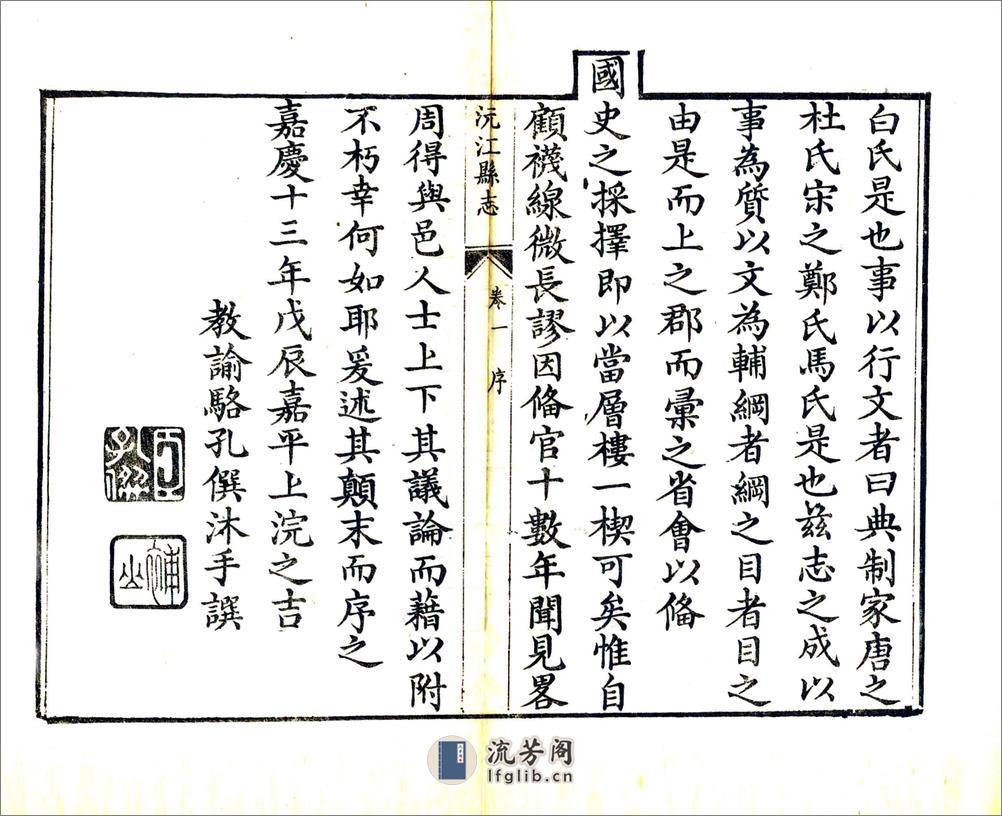 白氏是也事以行文者曰典制家唐之
杜氏宋之鄭氏馬氏是也兹志之成以
事為質以文為輔綱者綱之目者目之
由是而上之郡而彙之省會以俻
國史之採擇即以當層樓一楔可矣惟自
顧襪線微長謬因俻官十數年聞見畧
沅江縣志
卷一
序
周得與邑人士上下其議論而藉以附
不朽幸何如耶爰述其顛末而序之
嘉慶十三年戊辰嘉平上浣之吉
教諭駱孔僎沐手譔
孔僎
補山
流芳阁
lfglib.cn